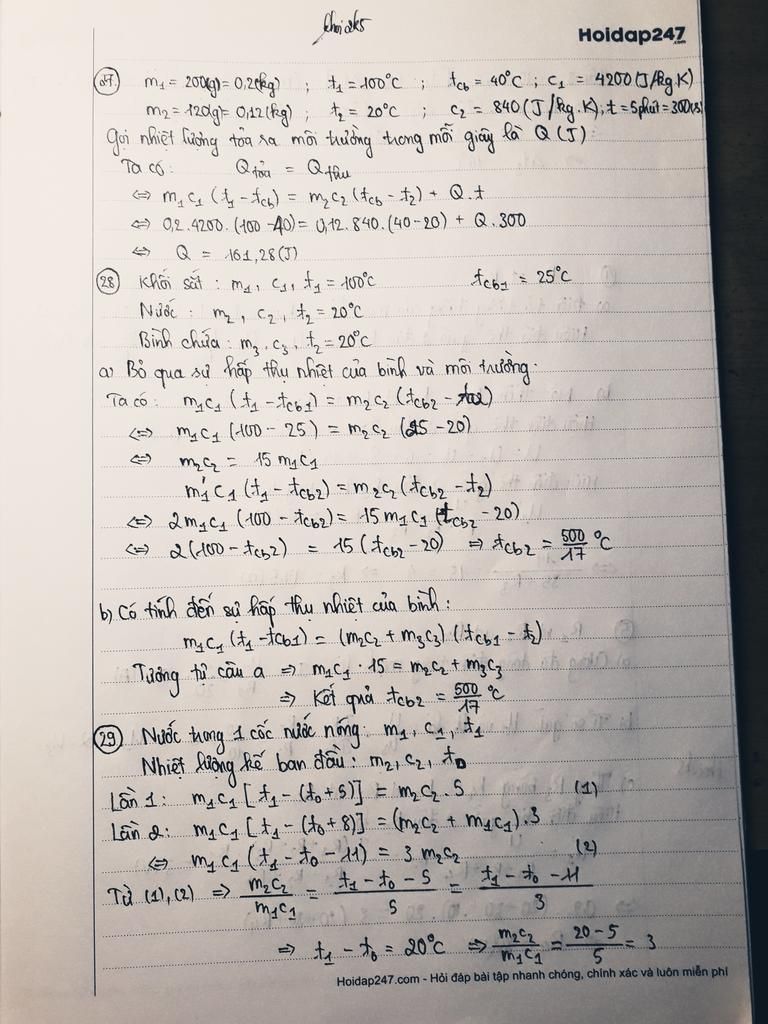 khoi2k5
Hoidap247.com
27. m₁ = 200(g) = 0,2(kg) ; t₁ = 100°C ; t_cb = 40°C ; c₁ = 4200 (J/kg.K)
m₂ = 120(g) = 0,12(kg) ; t₂ = 20°C ; c₂ = 840 (J/kg.K), t = 5phút = 300(s)
Gọi nhiệt lượng tỏa ra môi trường trong mỗi giây là Q (J)
Ta có: Q tỏa = Q thu
⇔ m₁c₁ (t₁ - t_cb) = m₂c₂ (t_cb - t₂) + Q.t
⇔ 0,2.4200. (100 - 40) = 0,12.840. (40 - 20) + Q.300
⇔ Q = 161,28 (J)
28. Khối sắt : m₁, c₁, t₁ = 100°C t_cb1 = 25°C
Nước : m₂, c₂, t₂ = 20°C
Bình chứa : m₃, c₃, t₂ = 20°C
a) Bỏ qua sự hấp thụ nhiệt của bình và môi trường.
Ta có: m₁c₁ (t₁ - t_cb1) = m₂c₂ (t_cb2 - t₂)
⇔ m₁c₁ (100 - 25) = m₂c₂ (25 - 20)
⇔ m₂c₂ = 15 m₁c₁
m₁'c₁ (t₁ - t_cb2) = m₂c₂ (t_cb2 - t₂)
⇔ 2m₁c₁ (100 - t_cb2) = 15m₁c₁ (t_cb2 - 20)
⇔ 2(100 - t_cb2) = 15 (t_cb2 - 20) ⇒ t_cb2 = 500/17 °C
b) Có tính đến sự hấp thụ nhiệt của bình :
m₁c₁ (t₁ - t_cb1) = (m₂c₂ + m₃c₃) (t_cb1 - t₂)
Tương tự câu a ⇒ m₁c₁ . 15 = m₂c₂ + m₃c₃
⇒ Kết quả t_cb2 = 500/17 °C
29. Nước trong 1 cốc nước nóng: m₁, c₁, t₁
Nhiệt lượng kế ban đầu : m₂, c₂, t₀
Lần 1: m₁c₁ [t₁ - (t₀ + 5)] = m₂c₂ . 5 (1)
Lần 2: m₁c₁ [t₁ - (t₀ + 8)] = (m₂c₂ + m₁c₁).3
⇔ m₁c₁ (t₁ - t₀ - 11) = 3 m₂c₂ (2)
Từ (1), (2) ⇒ m₂c₂/m₁c₁ = (t₁ - t₀ - 5)/5 = (t₁ - t₀ - 11)/3
⇒ t₁ - t₀ = 20°C ⇒ m₂c₂/m₁c₁ = (20 - 5)/5 = 3
Hoidap247.com - Hỏi đáp bài tập nhanh chóng, chính xác và luôn miễn phí